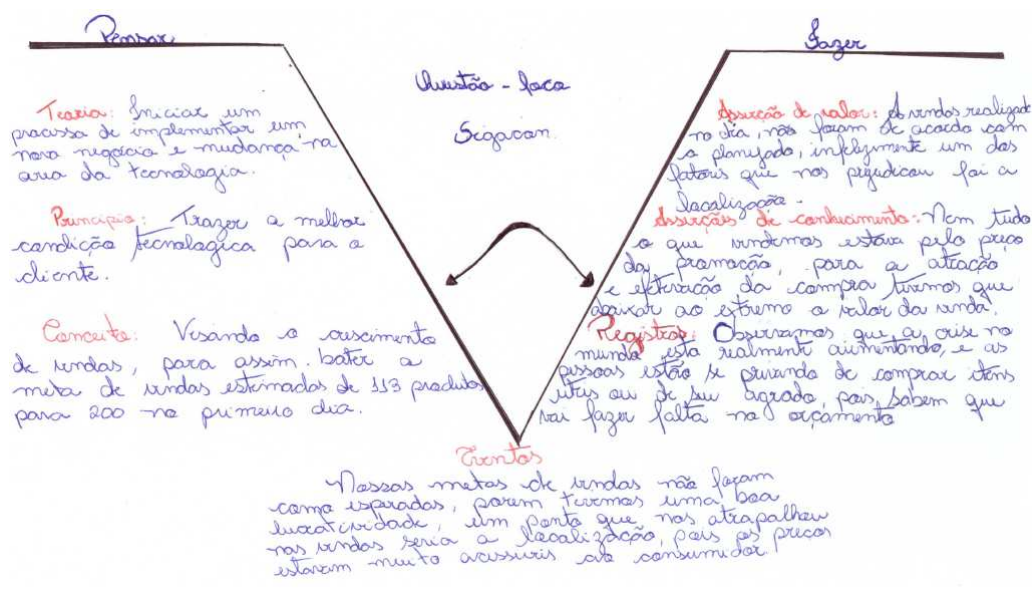 Pensar
Fazer
Questão - foco
Segacom.
Teoria: Iniciar um
processo de implementar um
novo negócio e mudança na
area da tecnologia.
Principio: Trazer a melhor
condição tecnologica para o
cliente.
Conceito: Visando o crescimento
de vendas, para assim bater a
meta de vendas estimadas de 113 produtos
para 200 no primeiro dia.
Asserção de valor: As vendas realizadas
no dia, não foram de acordo com
o planejado, infelizmente um dos
fatores que nos prejudicou foi a
localização.
Asserções de conhecimento: Nem tudo
o que vendemos estava pelo preço
da promoção, para a atração
e efetivação da compra tivemos que
abaixar ao extremo o valor da venda.
Registros: Observamos que a crise no
mundo esta realmente aumentando, e as
pessoas estão se privando de comprar itens
uteis ou de seu agrado, pois, sabem que
vai fazer falta no orçamento
Eventos
Nossas metas de vendas não foram
como esperadas, porem tivemos uma boa
lucratividade, um ponto que nos atrapalhou
nas vendas seria a localização, pois os preços
estavam muito acessiveis ao consumidor.